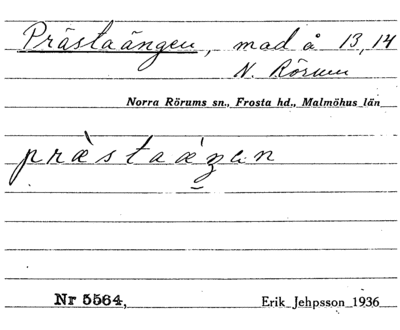 Prästaängen, mad å 13, 14
N. Rörum
Norra Rörums sn., Frosta hd., Malmöhus län
Nr 5564,
Erik Jehpsson 1936